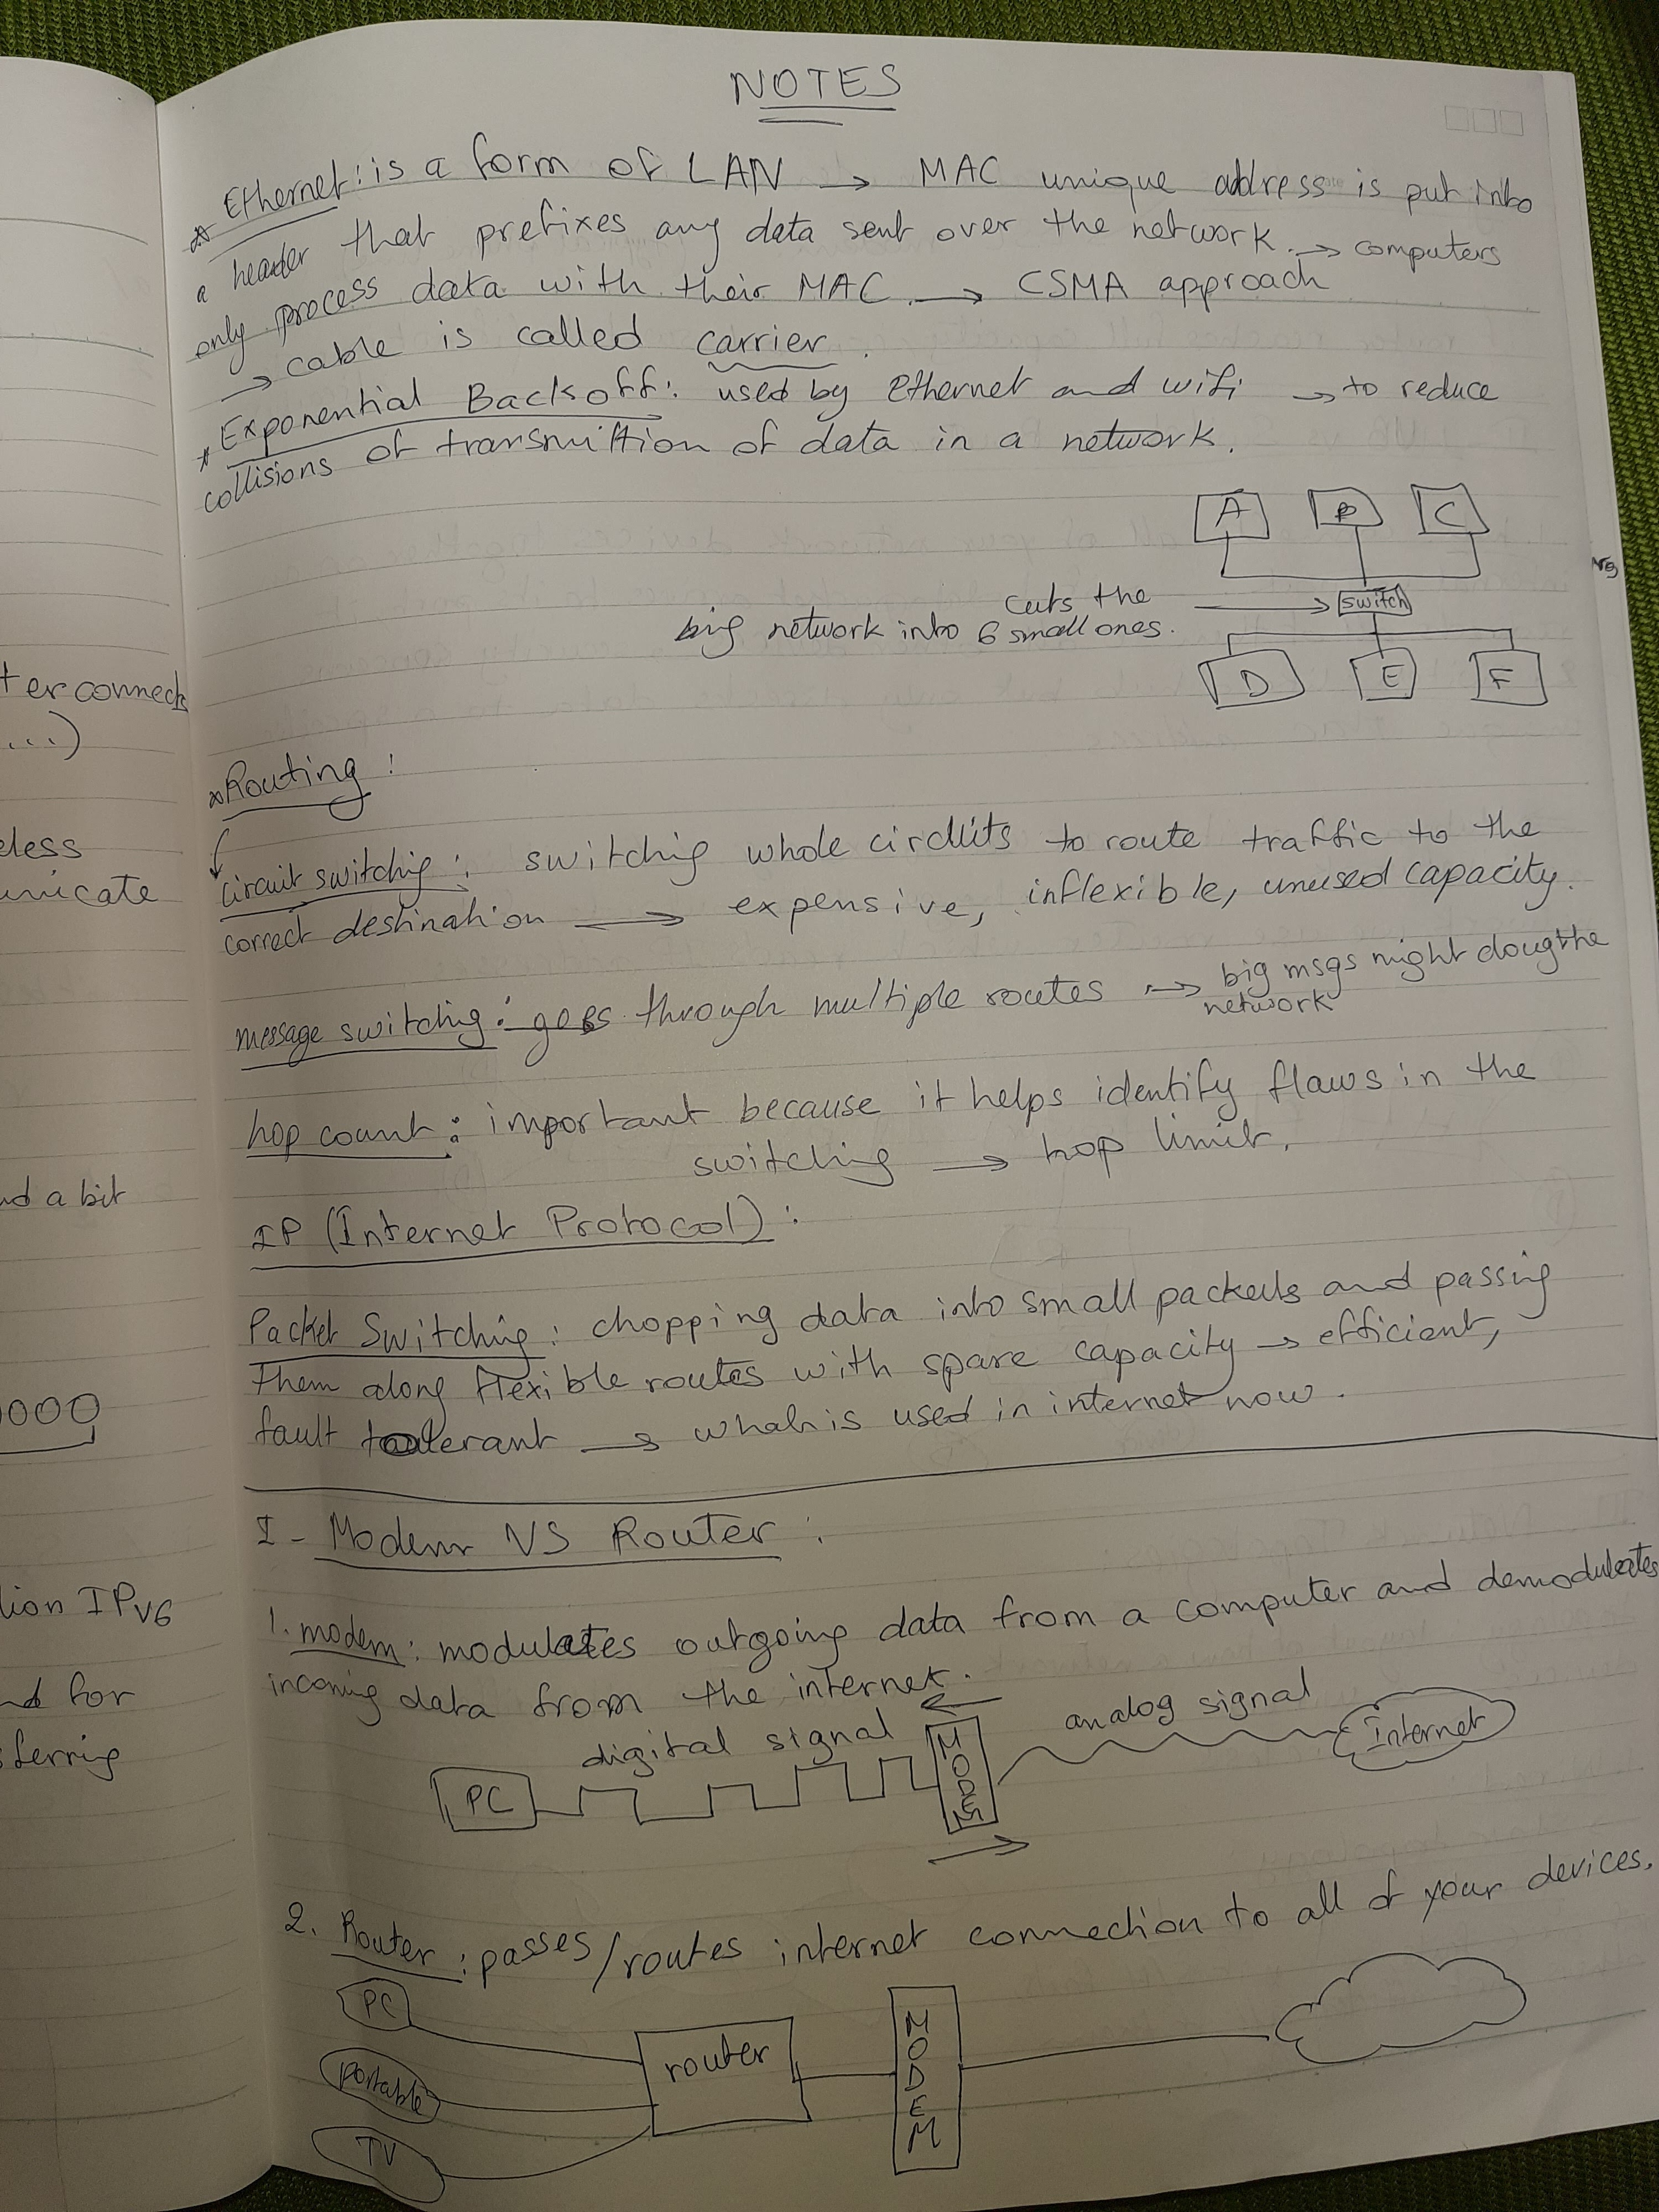 NOTES
* Ethernet: is a form of LAN → MAC unique address is put into
a header that prefixes any data sent over the network. → computers
only process data with their MAC. → CSMA approach
→ cable is called carrier.
* Exponential Backoff: used by Ethernet and wifi → to reduce
collisions of transmittion of data in a network.
A B C
cuts the → switch
big network into 6 small ones.
D E F
* Routing:
Circuit switching: switching whole circuits to route traffic to the
correct destination → expensive, inflexible, unused capacity.
message switching: goes through multiple routes → big msgs might
network
hop count: important because it helps identify flaws in the
switching → hop limit.
IP (Internet Protocol):
Packet Switching: chopping data into small packets and passing
them along flexible routes with spare capacity → efficient,
fault tolerant → what is used in internet now.
I - Modem VS Router:
1. modem: modulates outgoing data from a computer and demodulates
incoming data from the internet.
digital signal MODEM analog signal Internet
PC
2. Router: passes/routes internet connection to all of your devices.
PC
portable router MODEM
TV
ter connects
...)
eless
unicate
nd a bit
0000
tion IPv6
nd for
sferring